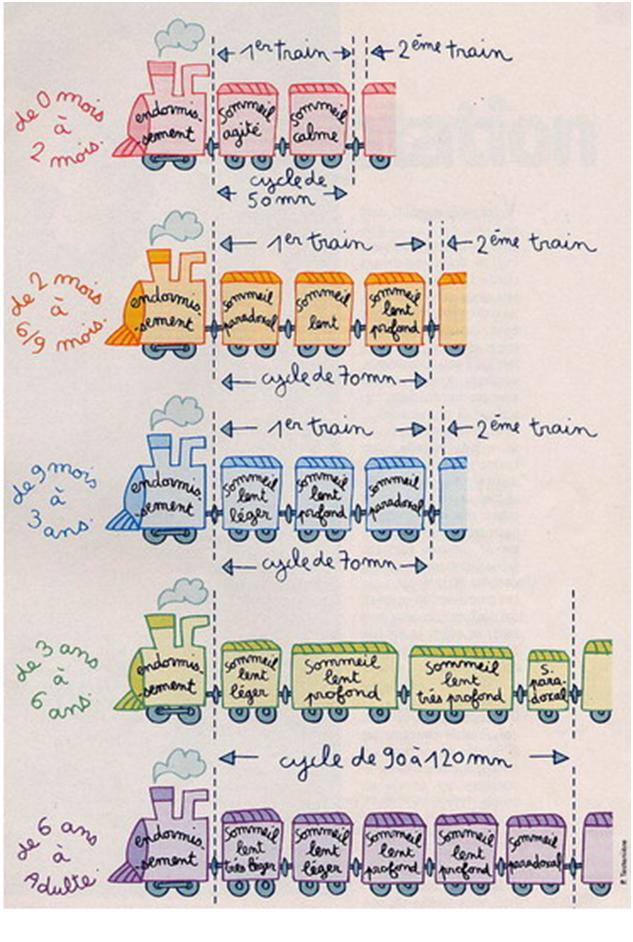 1er train
2ème train
de 0 mois
à
2 mois.
endormis-
-sement
Sommeil
agité
Sommeil
calme
cycle de
50 mn
1er train
2ème train
de 2 mois
à
6/9 mois.
endormis-
-sement
sommeil
paradoxal
sommeil
lent
sommeil
lent
profond
cycle de 70 mn
1er train
2ème train
de 9 mois
à
3 ans.
endormis-
-sement
sommeil
lent
léger
sommeil
lent
profond
sommeil
paradoxal
cycle de 70 mn
de 3 ans
à
6 ans.
endormis-
-sement
sommeil
lent
léger
Sommeil
lent
profond
Sommeil
lent
très profond
S.
para-
doxal
cycle de 90 à 120 mn
de 6 ans
à
Adulte.
endormis-
-sement
sommeil
lent
très léger
Sommeil
lent
léger
sommeil
lent
profond
sommeil
lent
profond
sommeil
paradoxal